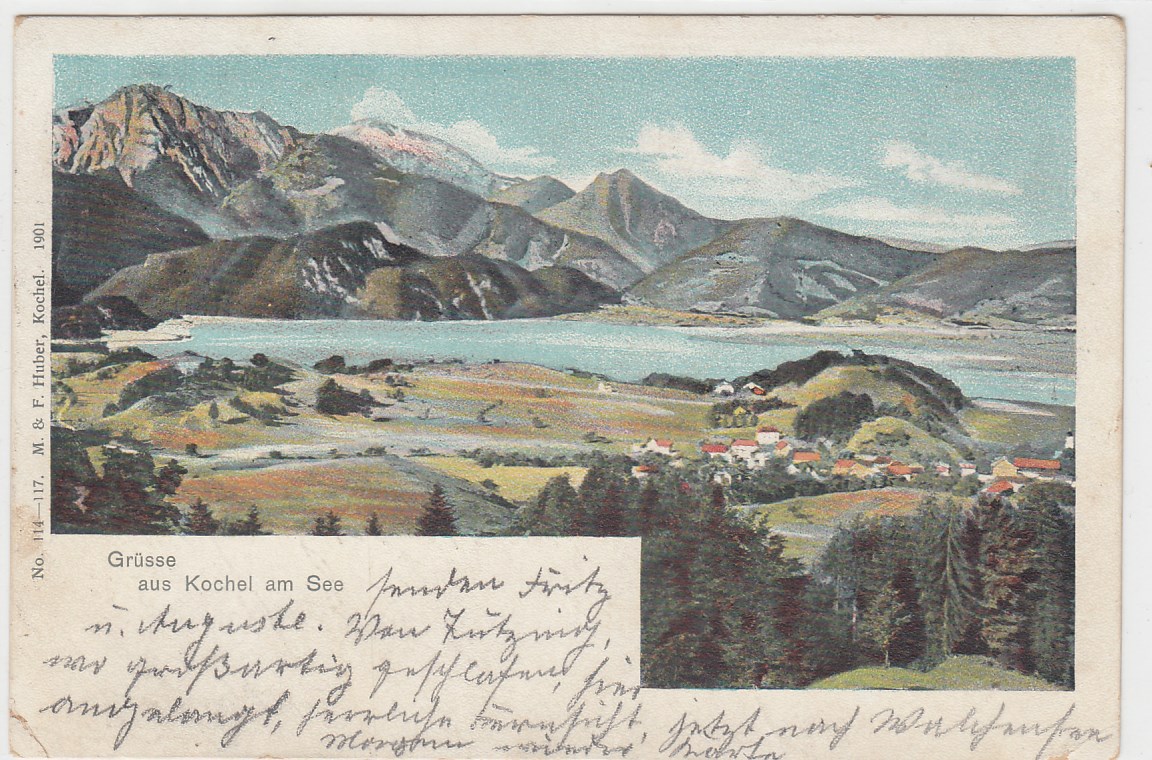 No. 114—117. M. & F. Huber, Kochel. 1901
Grüsse
aus Kochel am See senden Fritz
u. Auguste. Von Tutzing,
wo großartig geschlafen, hier
angelangt, herrliche Fernsicht, jetzt nach Walchensee
Morgen wieder Karte